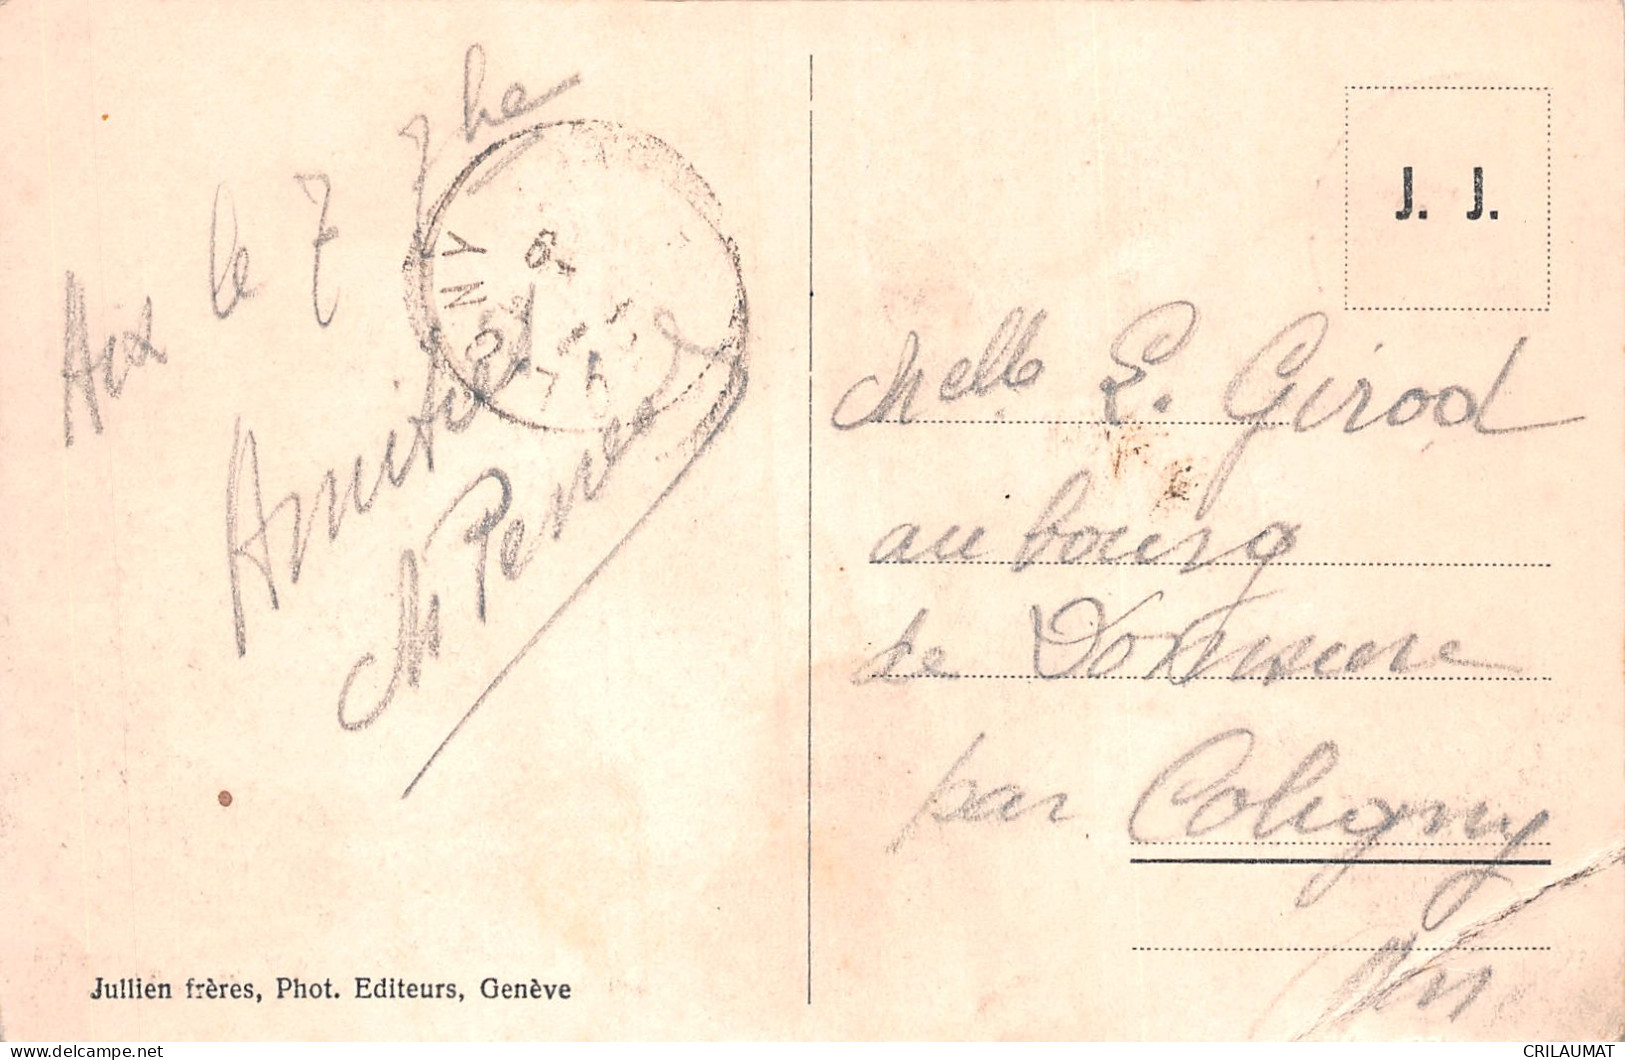 Aix le 7 7bre
Amitiés
M Perret
J. J.
Melle E. Girod
au bourg
de Domsure
par Coligny
Ain
Jullien frères, Phot. Editeurs, Genève
CRILAUMAT